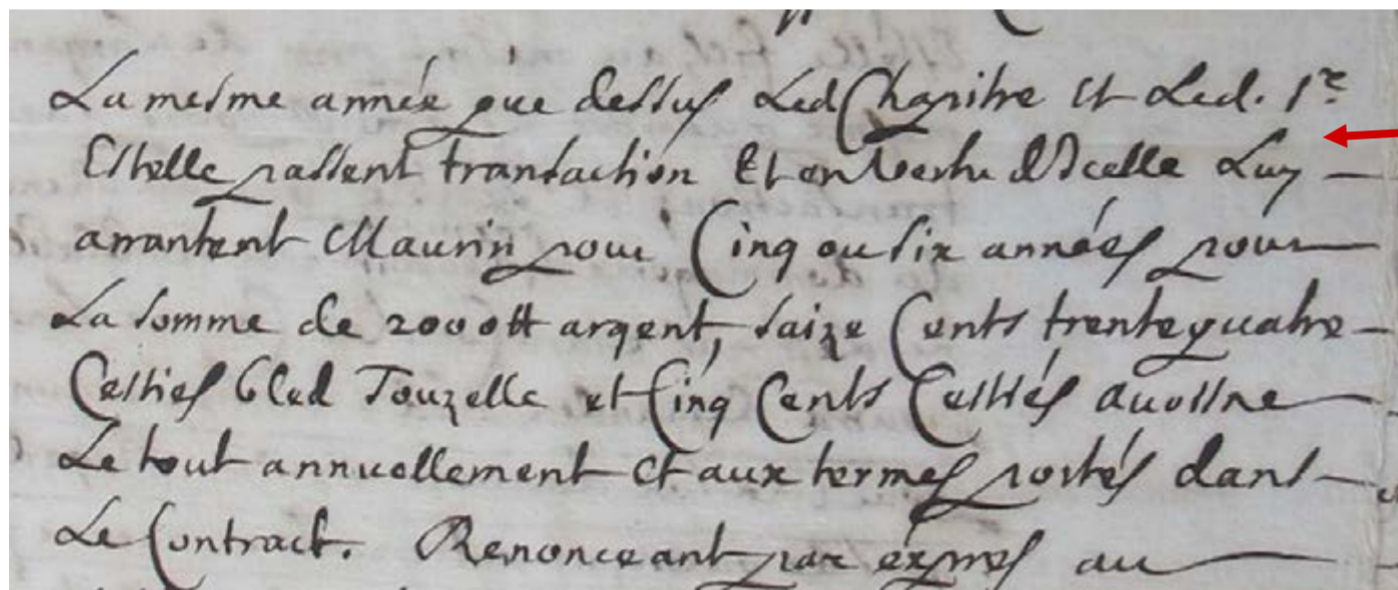 La mesme année que dessus Led Chapitre et Led. Sr
Estelle passent transaction Et en Vertu d'Icelle Luy
arrantent Maurin pour Cinq ou six années pour
La somme de 2000tt argent, saize Cents trente quatre
Cesties bled Touzelle et Cinq Cents Cestiés avoisne
Le tout annuellement et aux termes portés dans
Le Contract. Renonceant par expres au